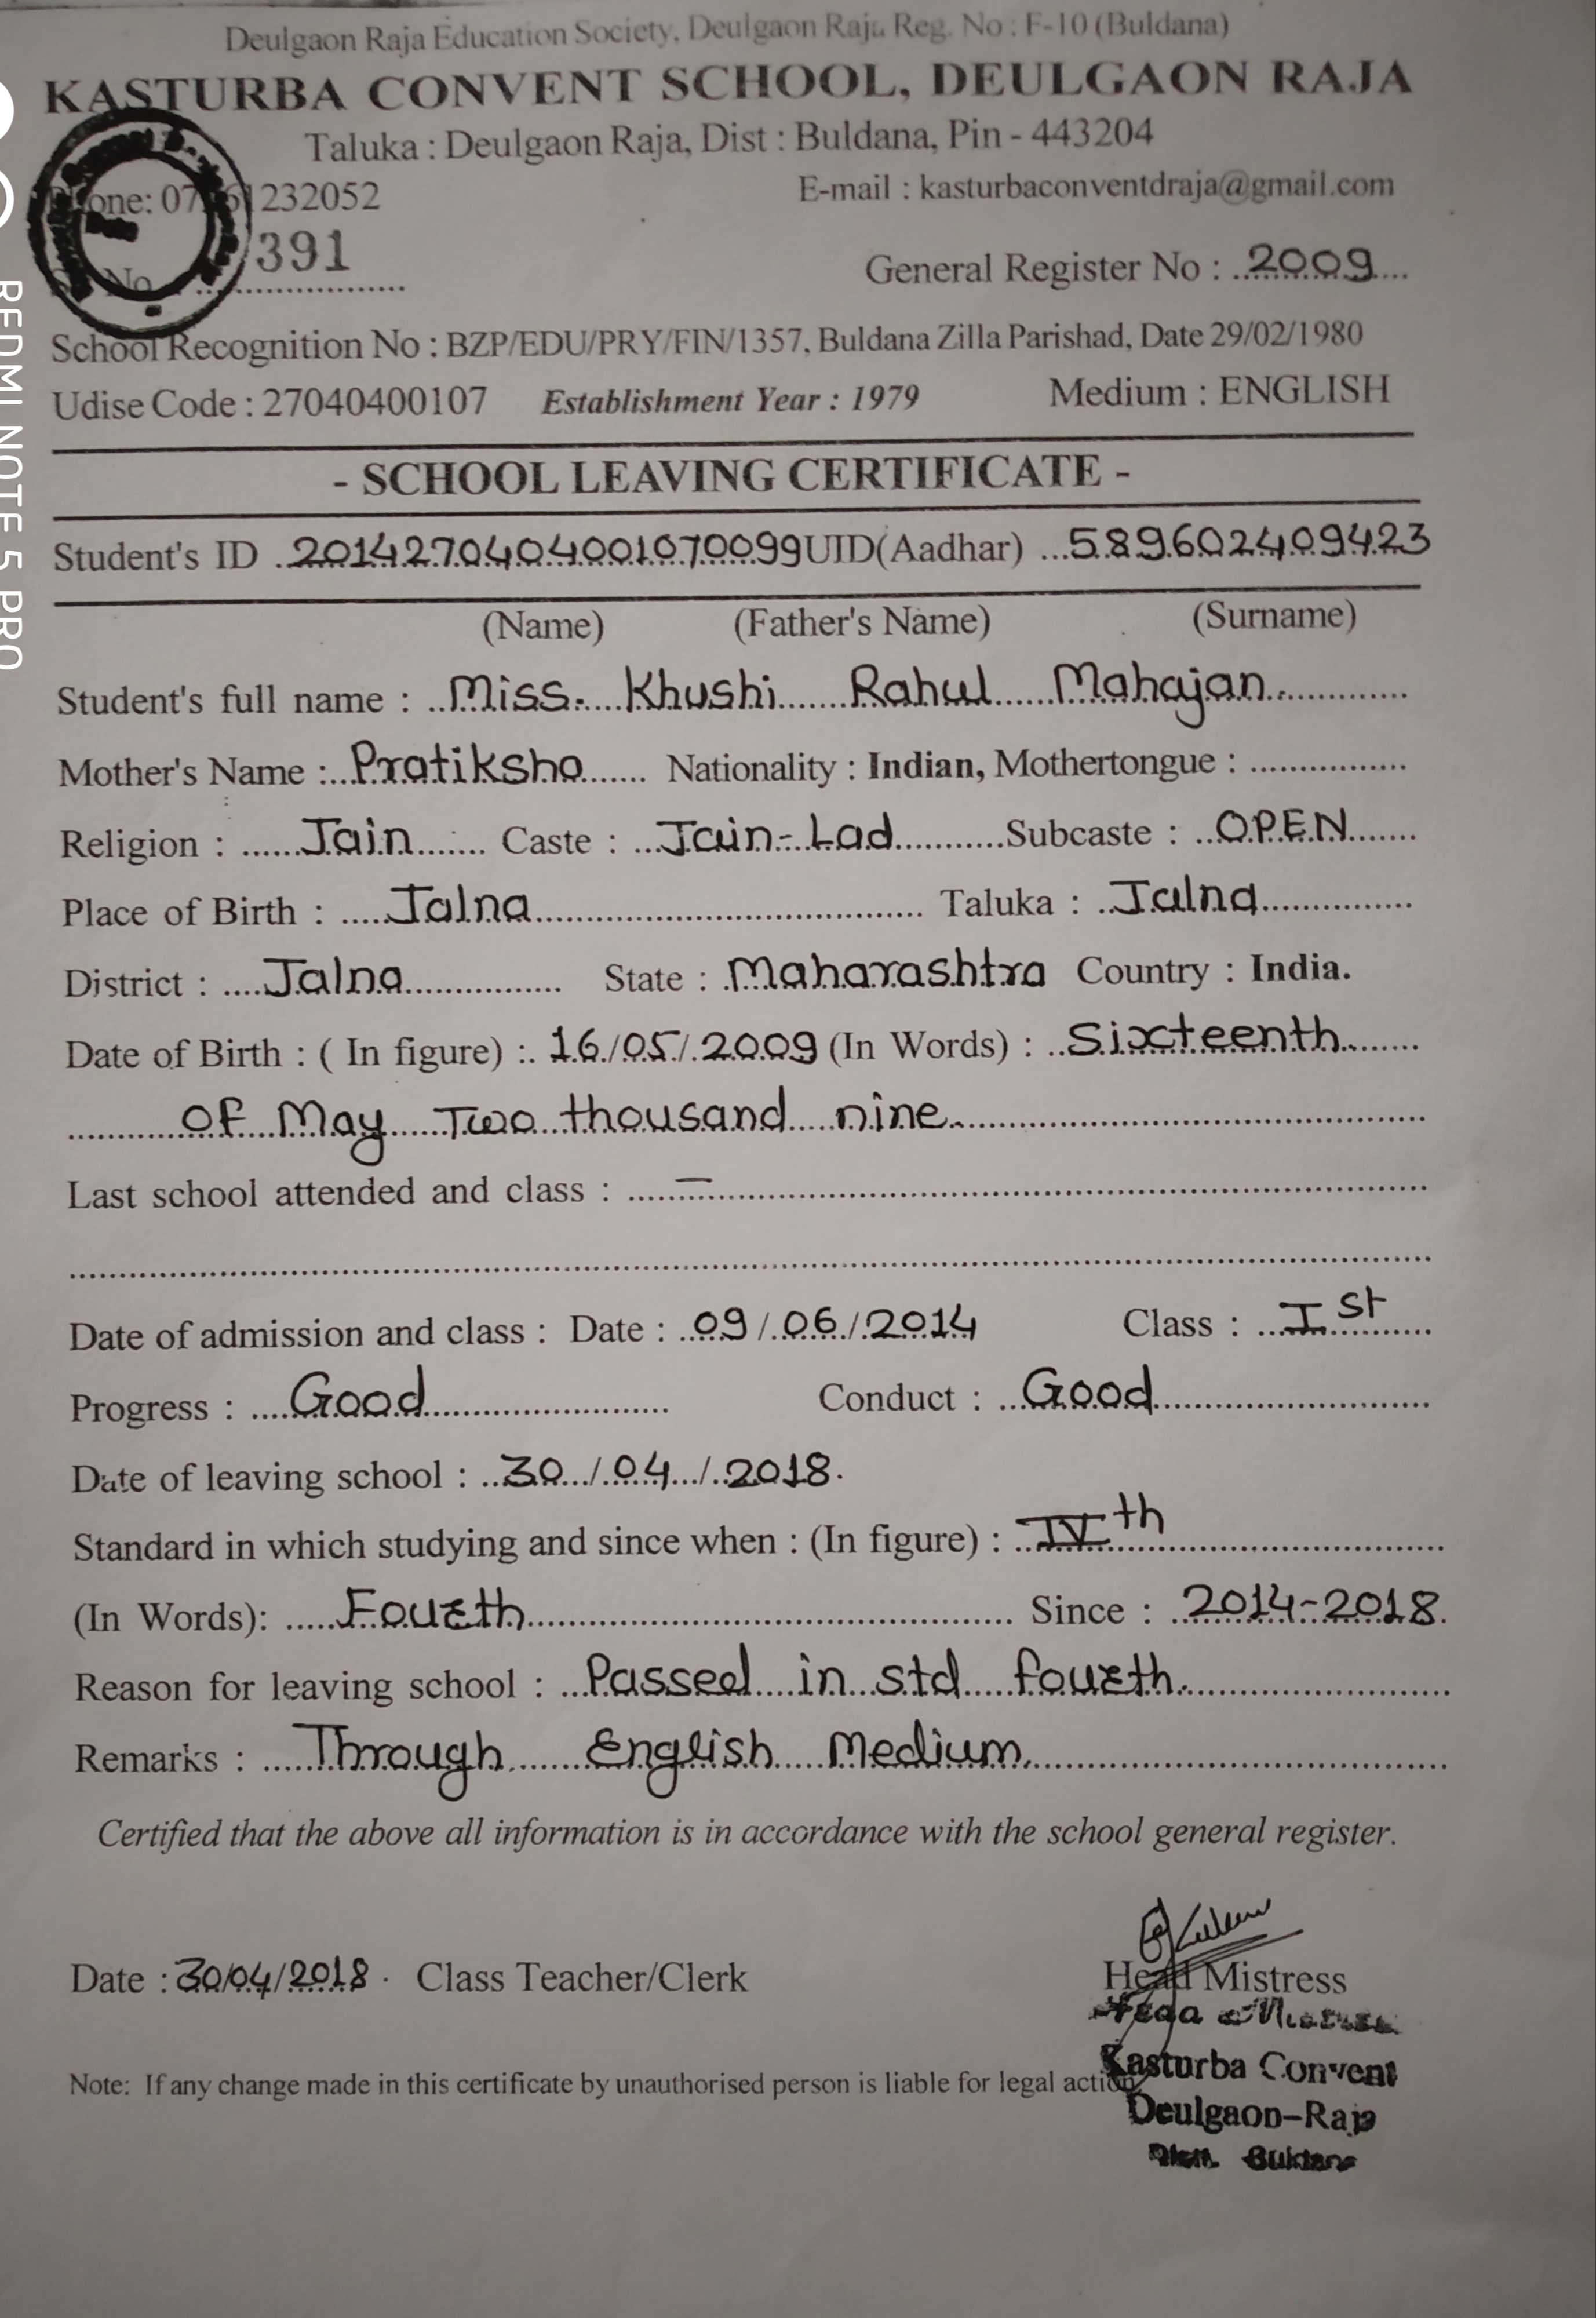 Deulgaon Raja Education Society, Deulgaon Raja Reg. No : F-10 (Buldana)
KASTURBA CONVENT SCHOOL, DEULGAON RAJA
Taluka : Deulgaon Raja, Dist : Buldana, Pin - 443204
232052 E-mail : kasturbaconventdraja@gmail.com
No 391 General Register No : 2009
School Recognition No : BZP/EDU/PRY/FIN/1357, Buldana Zilla Parishad, Date 29/02/1980
Udise Code : 27040400107 Establishment Year : 1979 Medium : ENGLISH
- SCHOOL LEAVING CERTIFICATE -
Student's ID 2014270404001070099 UID(Aadhar) 589602409423
(Name) (Father's Name) (Surname)
Student's full name : Miss. Khushi Rahul Mahajan.
Mother's Name : Pratiksha Nationality : Indian, Mothertongue :
Religion : Jain Caste : Jain-Lad Subcaste : OPEN
Place of Birth : Jalna Taluka : Jalna
District : Jalna State : Maharashtra Country : India.
Date of Birth : ( In figure) : 16/05/2009 (In Words) : Sixteenth
of May Two thousand nine.
Last school attended and class : —
Date of admission and class : Date : 09/06/2014 Class : Ist
Progress : Good Conduct : Good
Date of leaving school : 30/04/2018.
Standard in which studying and since when : (In figure) : IVth
(In Words): Fourth Since : 2014-2018.
Reason for leaving school : Passed in std fourth.
Remarks : Through English Medium.
Certified that the above all information is in accordance with the school general register.
Date : 30/04/2018 . Class Teacher/Clerk Head Mistress
Head Mistress
Note: If any change made in this certificate by unauthorised person is liable for legal action.
Kasturba Convent
Deulgaon-Raja
Dist. Buldana
REDMI NOTE 5 PRO